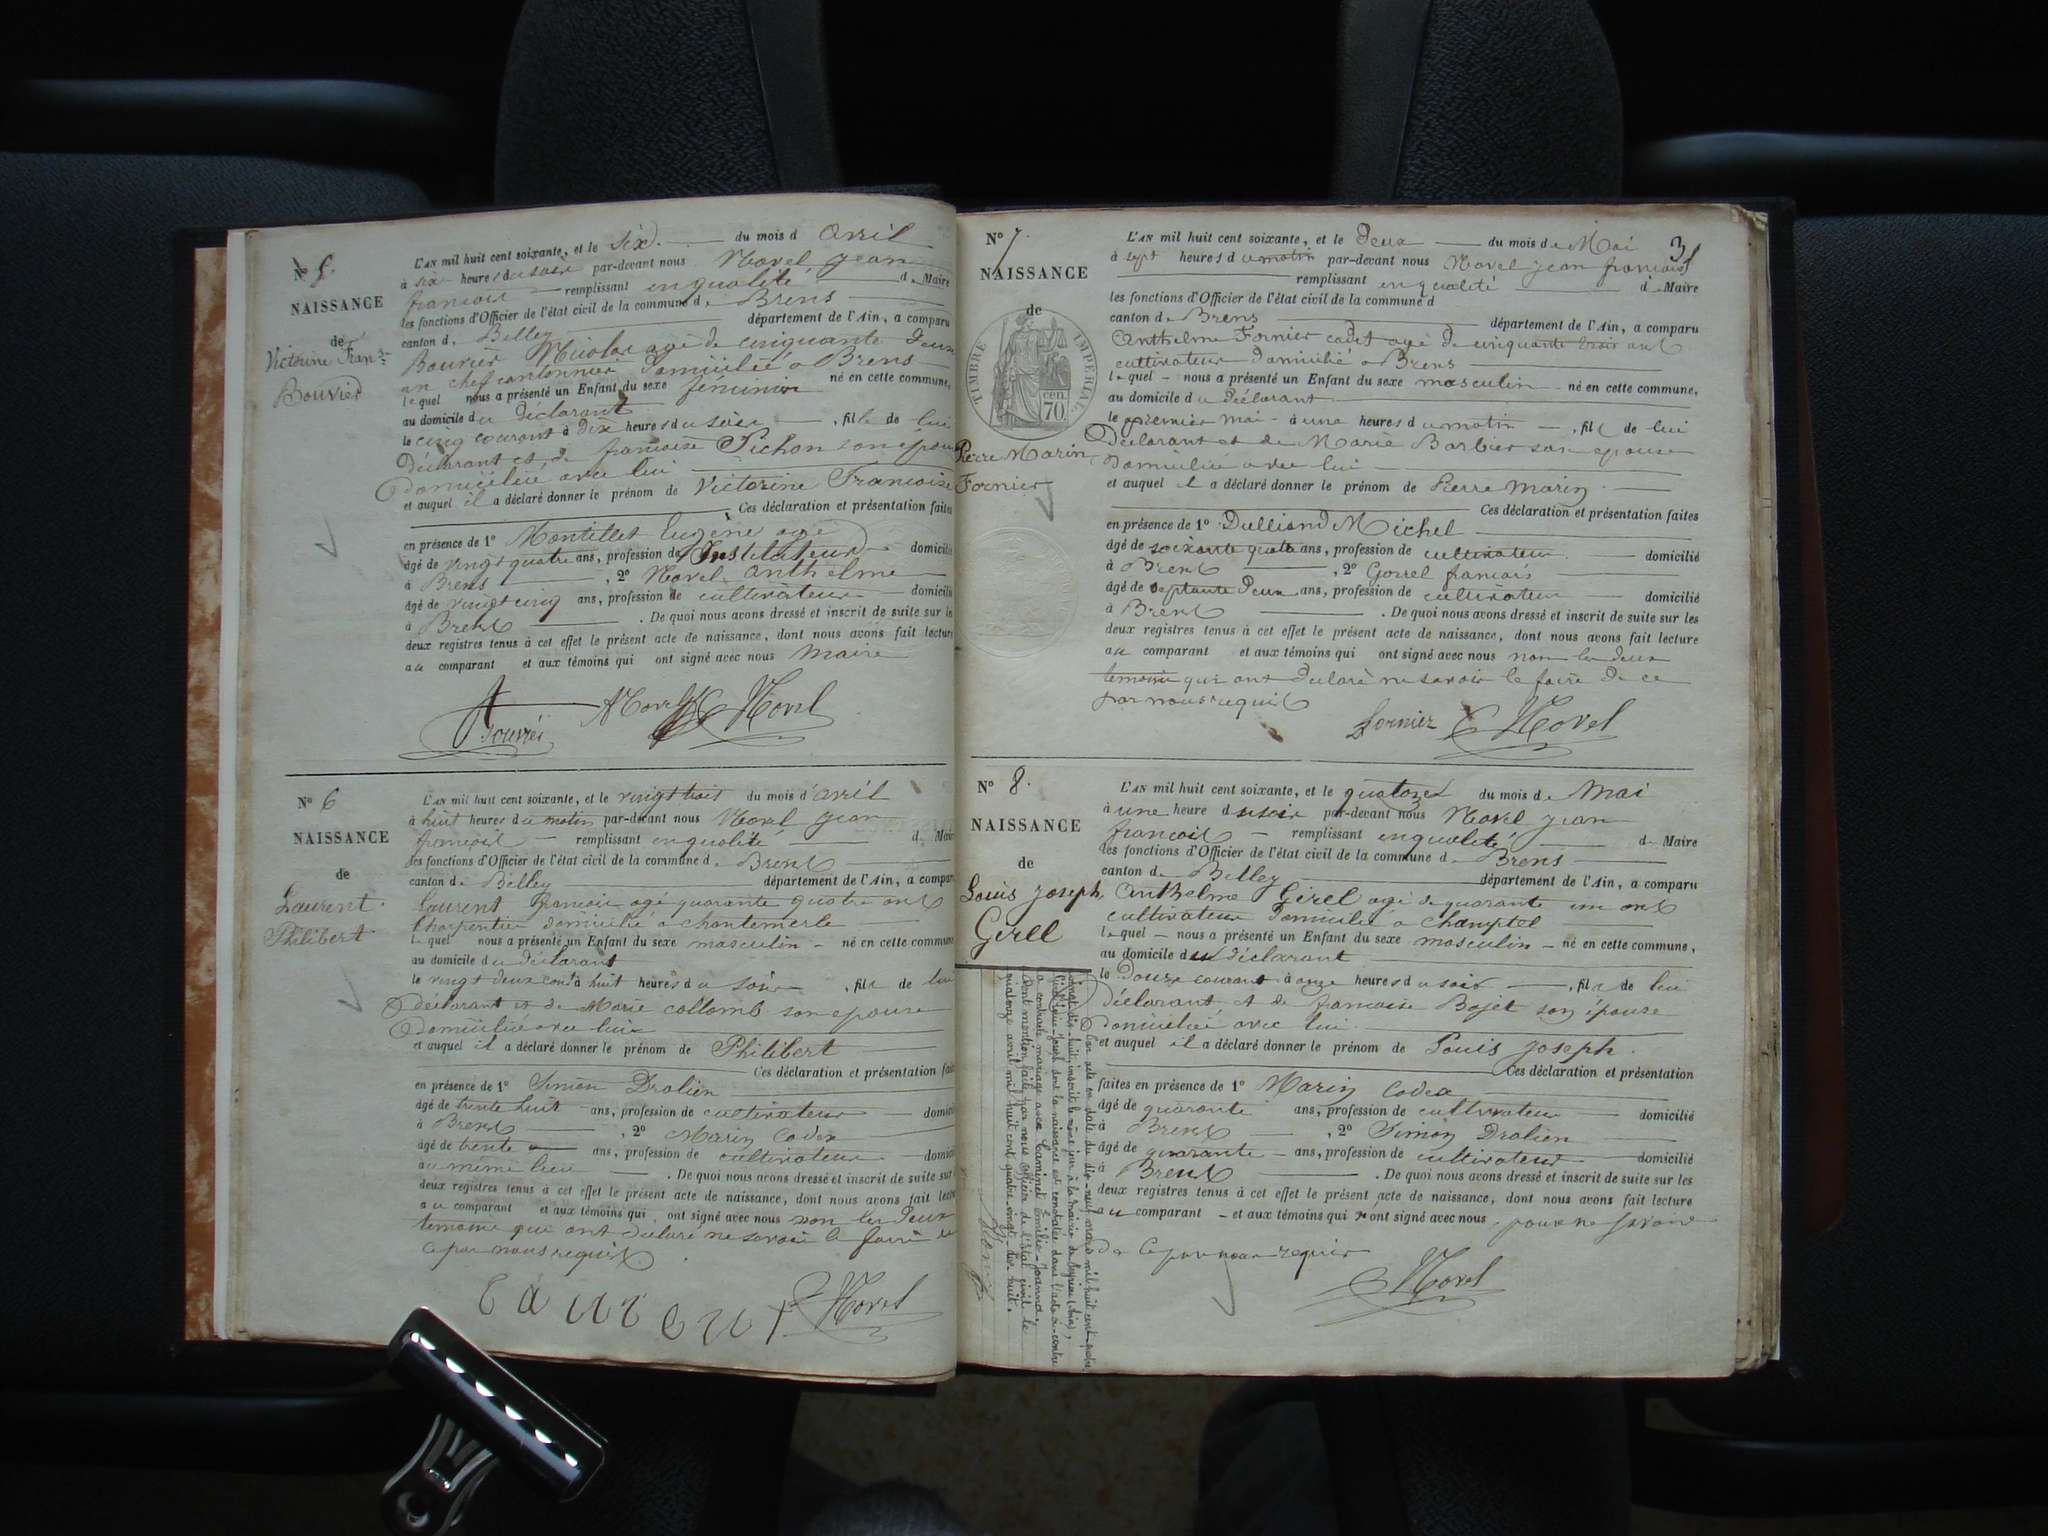 N° 5.
NAISSANCE
de
Victorine Franse
Bouvier
L'AN mil huit cent soixante, et le six du mois d avril
à six heures du soir par-devant nous Morel jean
francois remplissant en qualité de Maire
les fonctions d'Officier de l'état civil de la commune de Brens
canton de Belley département de l'Ain, a comparu
Bouvier Nicolas agé de cinquante deux
an chef cantonnier domicilié a Brens
lequel nous a présenté un Enfant du sexe féminin né en cette commune,
au domicile du déclarant
le cinq courant à dix heures du soir, fille de lui
déclarant et de francoise Pichon son epouse
domiciliée avec lui
et auquel il a déclaré donner le prénom de Victorine Francoise
Ces déclaration et présentation faites
en présence de 1° Montillet Eugène agé
âgé de vingt quatre ans, profession de Instituteur domicilié
à Brens, 2° Morel anthelme
âgé de vingt cinq ans, profession de cultivateur domicilié
à Brens. De quoi nous avons dressé et inscrit de suite sur les
deux registres tenus à cet effet le présent acte de naissance, dont nous avons fait lecture
au comparant et aux témoins qui ont signé avec nous maire
Bouvier AMorel Morel
N° 6
NAISSANCE
de
Laurent
Philibert
L'AN mil huit cent soixante, et le vingt trois du mois d'avril
à huit heures du matin par-devant nous Morel jean
francois remplissant en qualité de Maire
les fonctions d'Officier de l'état civil de la commune de Brens
canton de Belley département de l'Ain, a comparu
Laurent francois agé quarante quatre ans
charpentier domicilié a chantemerle
lequel nous a présenté un Enfant du sexe masculin né en cette commune
au domicile du déclarant
le vingt deux cont à huit heures du soir, fils de lui
déclarant et de Marie collomb son epouse
domiciliée avec lui
et auquel il a déclaré donner le prénom de Philibert
Ces déclaration et présentation faites
en présence de 1° Simon Dralien
âgé de trente huit ans, profession de cultivateur domicilié
à Brens, 2° Marin Codex
âgé de trente ans, profession de cultivateur domicilié
au même lieu. De quoi nous avons dressé et inscrit de suite sur
deux registres tenus à cet effet le présent acte de naissance, dont nous avons fait lecture
au comparant et aux témoins qui ont signé avec nous non les deux
temoins qui ont declaré ne savoir le faire de
ce par nous requis
Laurent Morel
3
N° 7.
NAISSANCE
de
TIMBRE IMPERIAL
70 cen.
Pierre Marin
Fornier
L'AN mil huit cent soixante, et le deux du mois de Mai
à sept heures du matin par-devant nous Morel jean francois
remplissant en qualité de Maire
les fonctions d'Officier de l'état civil de la commune d
canton de Brens département de l'Ain, a comparu
Anthelme Fornier cadet agé de cinquante trois ans
cultivateur domicilié a Brens
lequel nous a présenté un Enfant du sexe masculin né en cette commune,
au domicile du déclarant
le premier mai à une heures du matin, fils de lui
déclarant et de Marie Barbier son epouse
domiciliée avec lui
et auquel il a déclaré donner le prénom de Pierre Marin
Ces déclaration et présentation faites
en présence de 1° Dulliand Michel
âgé de soixante quatre ans, profession de cultivateur domicilié
à Brens, 2° Gorrel francois
âgé de septante deux ans, profession de cultivateur domicilié
à Brens. De quoi nous avons dressé et inscrit de suite sur les
deux registres tenus à cet effet le présent acte de naissance, dont nous avons fait lecture
au comparant et aux témoins qui ont signé avec nous non les deux
temoins qui ont declaré ne savoir le faire de ce
par nous requis
Fornier Morel
N° 8.
NAISSANCE
de
Louis Joseph
Girel
L'AN mil huit cent soixante, et le quatorze du mois de Mai
à une heure du soir par-devant nous Morel jean
francois remplissant en qualité de Maire
les fonctions d'Officier de l'état civil de la commune de Brens
canton de Belley département de l'Ain, a comparu
Anthelme Girel agé de quarante un ans
cultivateur domicilié a Champtel
lequel nous a présenté un Enfant du sexe masculin né en cette commune,
au domicile du déclarant
le douze courant à onze heures du soir, fils de lui
déclarant et de francoise Bojet son épouse
domiciliée avec lui
et auquel il a déclaré donner le prénom de Louis Joseph.
Ces déclaration et présentation
faites en présence de 1° Marin Codex
âgé de quarante ans, profession de cultivateur domicilié
à Brens, 2° Simon Dralien
âgé de quarante ans, profession de cultivateur domicilié
à Brens. De quoi nous avons dressé et inscrit de suite sur les
deux registres tenus à cet effet le présent acte de naissance, dont nous avons fait lecture
au comparant et aux témoins qui n'ont signé avec nous pour ne savoir
de ce par nous requis
Morel
Par acte en date du dix-neuf mars mil huit cent quatre
vingt dix-huit, inscrit le même jour à la mairie de
Louis-Joseph dont la naissance est constatée dans l'acte ci-contre
a contracté mariage avec Caminet Emilie-Joanna.
Dont mention faite par nous officier de l'état civil le
quatorze avril mil huit cent quatre vingt dix huit.